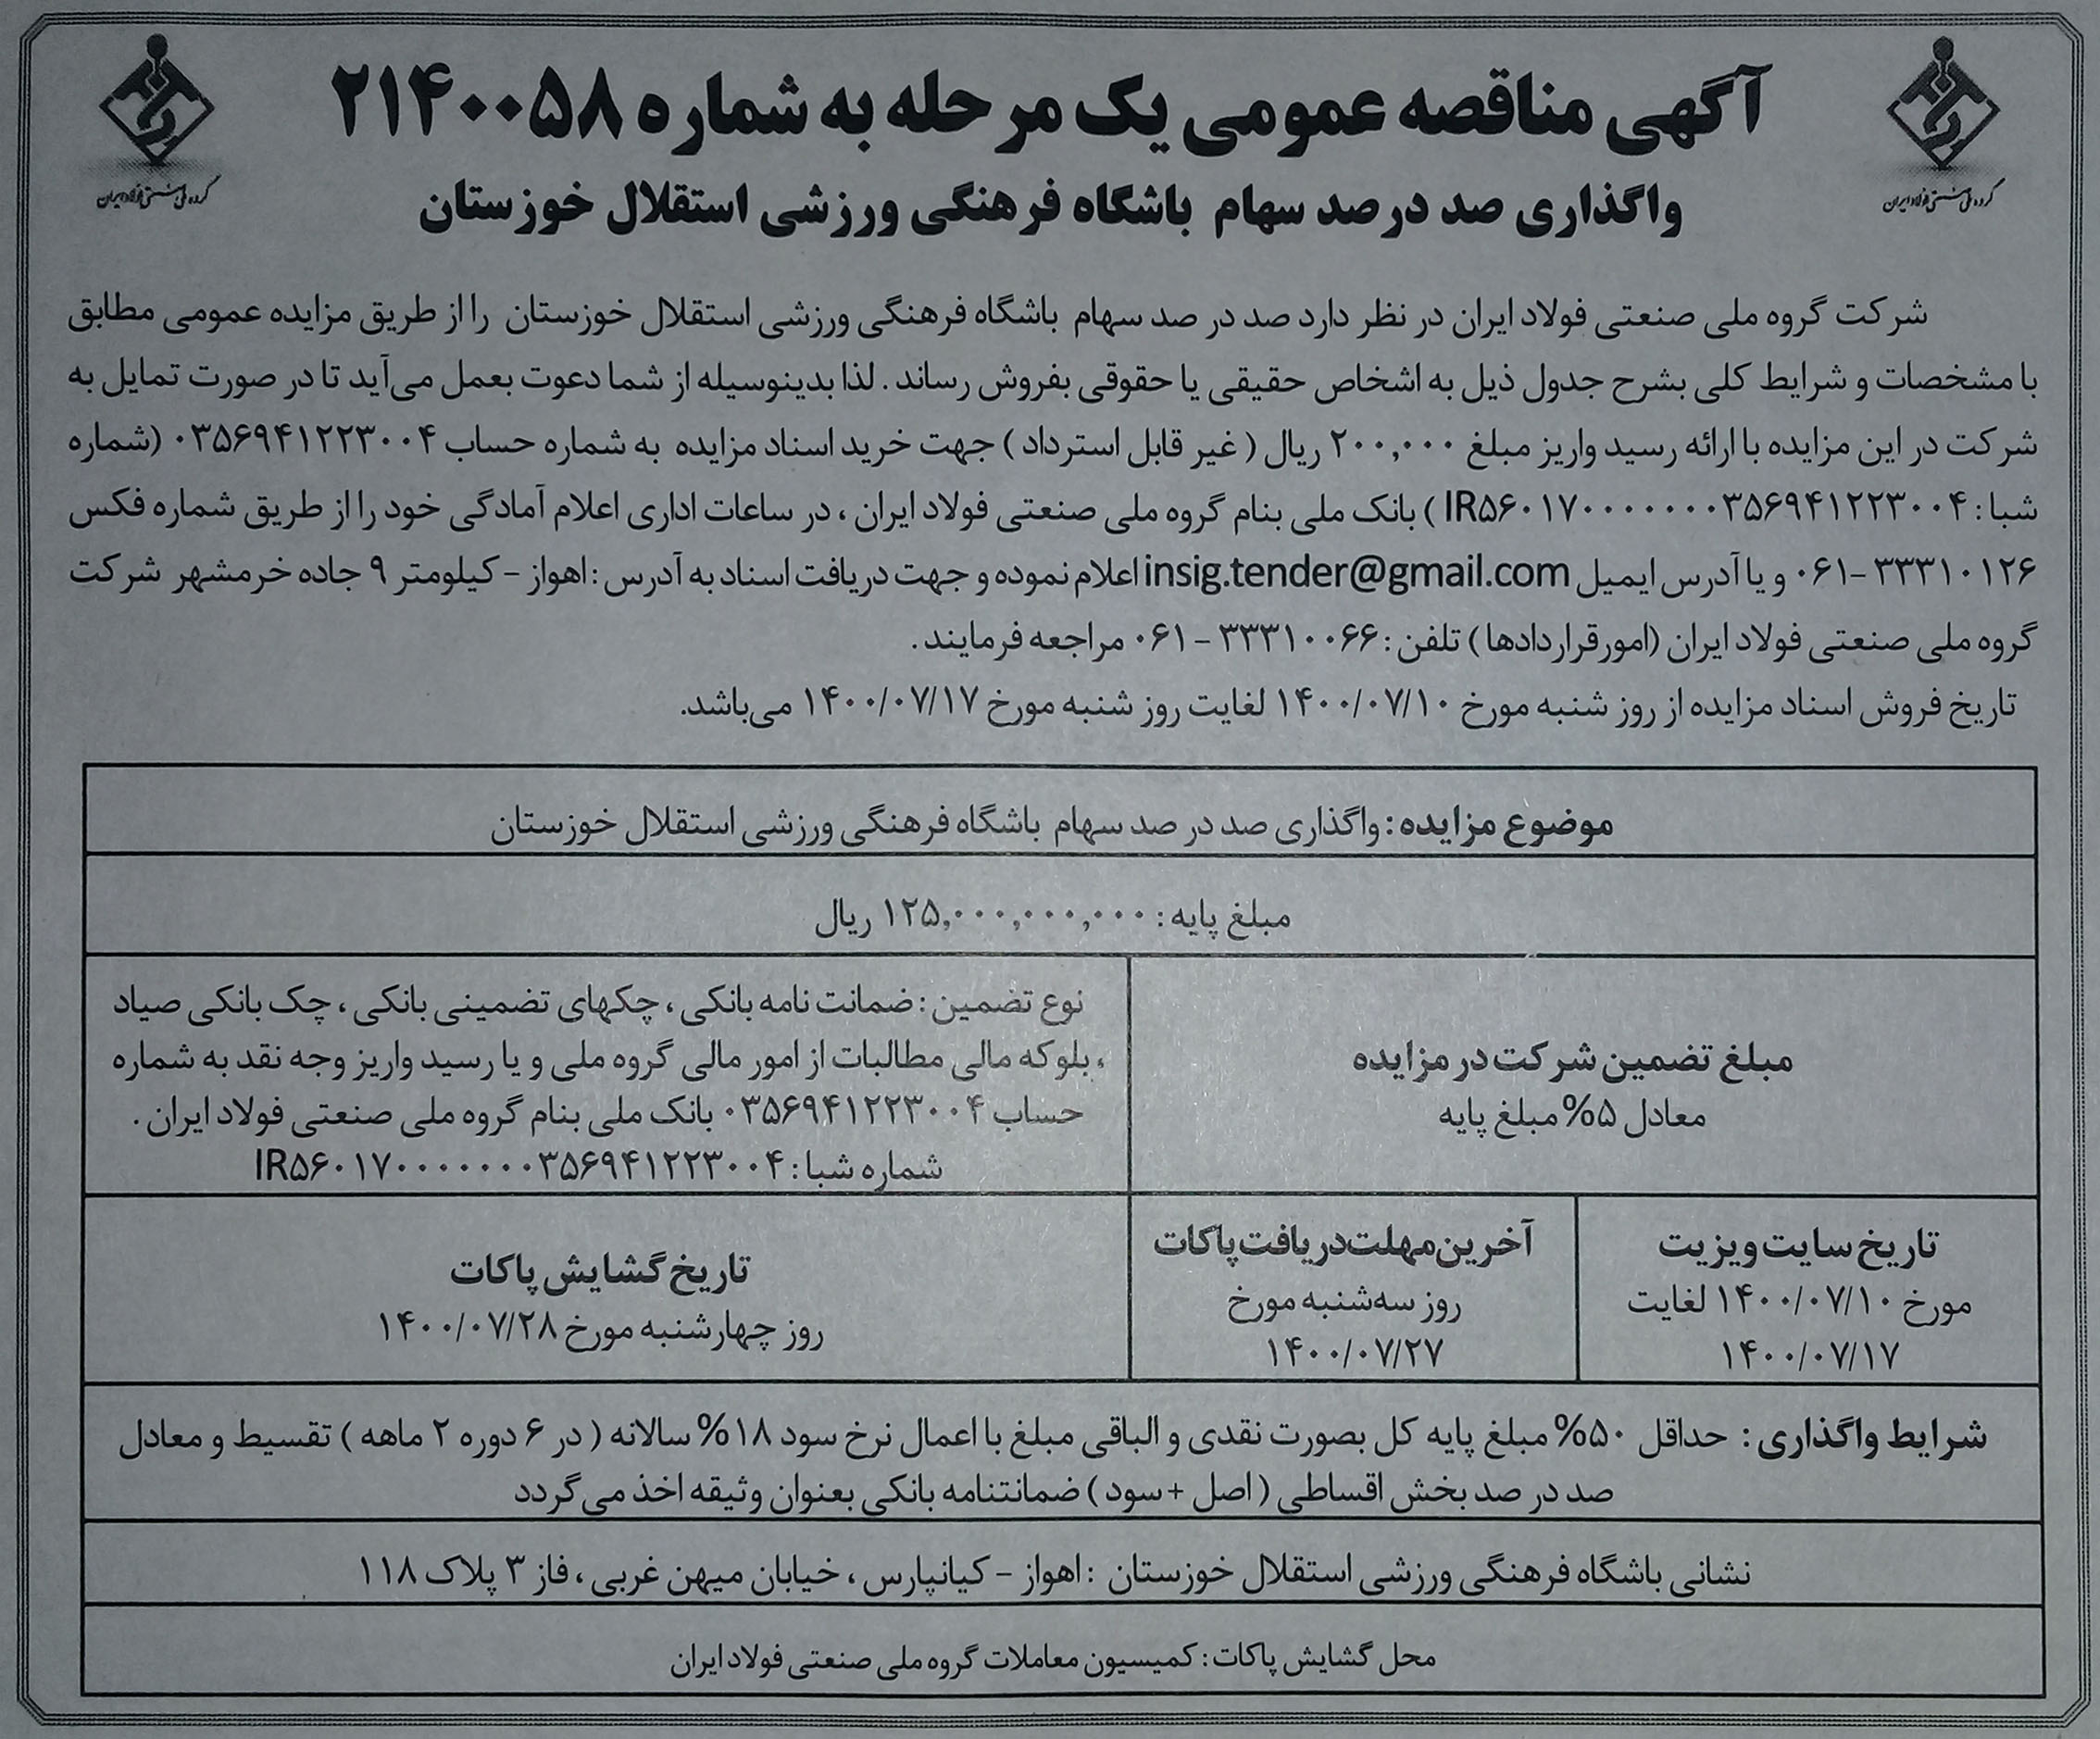 آگهی مناقصه عمومی یک مرحله به شماره ۲۱۴۰۰۵۸
واگذاری صد درصد سهام باشگاه فرهنگی ورزشی استقلال خوزستان
گروه ملی صنعتی فولاد ایران
گروه ملی صنعتی فولاد ایران
شرکت گروه ملی صنعتی فولاد ایران در نظر دارد صد در صد سهام باشگاه فرهنگی ورزشی استقلال خوزستان را از طریق مزایده عمومی مطابق
با مشخصات و شرایط کلی بشرح جدول ذیل به اشخاص حقیقی یا حقوقی بفروش رساند. لذا بدینوسیله از شما دعوت بعمل می‌آید تا در صورت تمایل به
شرکت در این مزایده با ارائه رسید واریز مبلغ ۲۰۰,۰۰۰ ریال (غیر قابل استرداد) جهت خرید اسناد مزایده به شماره حساب ۰۳۵۶۹۴۱۲۲۳۰۰۴ (شماره
شبا: IR۵۶۰۱۷۰۰۰۰۰۰۰۳۵۶۹۴۱۲۲۳۰۰۴) بانک ملی بنام گروه ملی صنعتی فولاد ایران، در ساعات اداری اعلام آمادگی خود را از طریق شماره فکس
۰۶۱-۳۳۳۱۰۱۲۶ و یا آدرس ایمیل insig.tender@gmail.com اعلام نموده و جهت دریافت اسناد به آدرس: اهواز - کیلومتر ۹ جاده خرمشهر شرکت
گروه ملی صنعتی فولاد ایران (امور قراردادها) تلفن: ۳۳۳۱۰۰۶۶ - ۰۶۱ مراجعه فرمایند.
تاریخ فروش اسناد مزایده از روز شنبه مورخ ۱۴۰۰/۰۷/۱۰ لغایت روز شنبه مورخ ۱۴۰۰/۰۷/۱۷ می‌باشد.
موضوع مزایده: واگذاری صد در صد سهام باشگاه فرهنگی ورزشی استقلال خوزستان
مبلغ پایه: ۱۲۵,۰۰۰,۰۰۰,۰۰۰ ریال
مبلغ تضمین شرکت در مزایده
معادل ۵% مبلغ پایه
نوع تضمین: ضمانت نامه بانکی، چکهای تضمینی بانکی، چک بانکی صیاد
، بلوکه مالی مطالبات از امور مالی گروه ملی و یا رسید واریز وجه نقد به شماره
حساب ۰۳۵۶۹۴۱۲۲۳۰۰۴ بانک ملی بنام گروه ملی صنعتی فولاد ایران.
شماره شبا: IR۵۶۰۱۷۰۰۰۰۰۰۰۳۵۶۹۴۱۲۲۳۰۰۴
تاریخ سایت ویزیت
مورخ ۱۴۰۰/۰۷/۱۰ لغایت
۱۴۰۰/۰۷/۱۷
آخرین مهلت دریافت پاکات
روز سه‌شنبه مورخ
۱۴۰۰/۰۷/۲۷
تاریخ گشایش پاکات
روز چهارشنبه مورخ ۱۴۰۰/۰۷/۲۸
شرایط واگذاری: حداقل ۵۰% مبلغ پایه کل بصورت نقدی و الباقی مبلغ با اعمال نرخ سود ۱۸% سالانه (در ۶ دوره ۲ ماهه) تقسیط و معادل
صد در صد بخش اقساطی (اصل + سود) ضمانتنامه بانکی بعنوان وثیقه اخذ می‌گردد
نشانی باشگاه فرهنگی ورزشی استقلال خوزستان : اهواز - کیانپارس، خیابان میهن غربی، فاز ۳ پلاک ۱۱۸
محل گشایش پاکات: کمیسیون معاملات گروه ملی صنعتی فولاد ایران